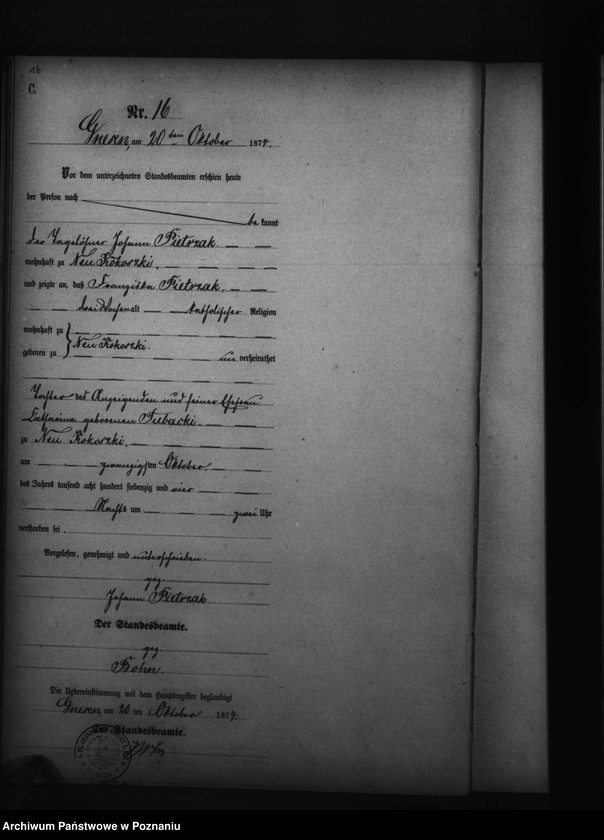 16
C.
Nr. 16
Gnesen, am 20ten Oktober 1874.
Vor dem unterzeichneten Standesbeamten erschien heute
der Person nach
be kannt
der Tagelöhner Johann Pietrzak
wohnhaft zu Neu Kokoszki,
und zeigte an, daß Franziska Pietrzak,
drei Wochen alt katholischer Religion
wohnhaft zu
Neu Kokoszki.
geboren zu un verheirathet
Tochter des Anzeigenden und seiner Ehefrau
Catharina geborenen
zu Neu Kokoszki,
am zwanzigsten Oktober
des Jahres tausend acht hundert siebenzig und vier
Nachts um zwei Uhr
verstorben sei
Vorgelesen, genehmigt und unterschrieben
gz
Johann Pietrzak
Der Standesbeamte.
gz
Bohn
Die Uebereinstimmung mit dem Hauptregister beglaubigt
Gnesen, am 20 ten Oktober 1874.
Der Standesbeamte.
Archiwum Państwowe w Poznaniu